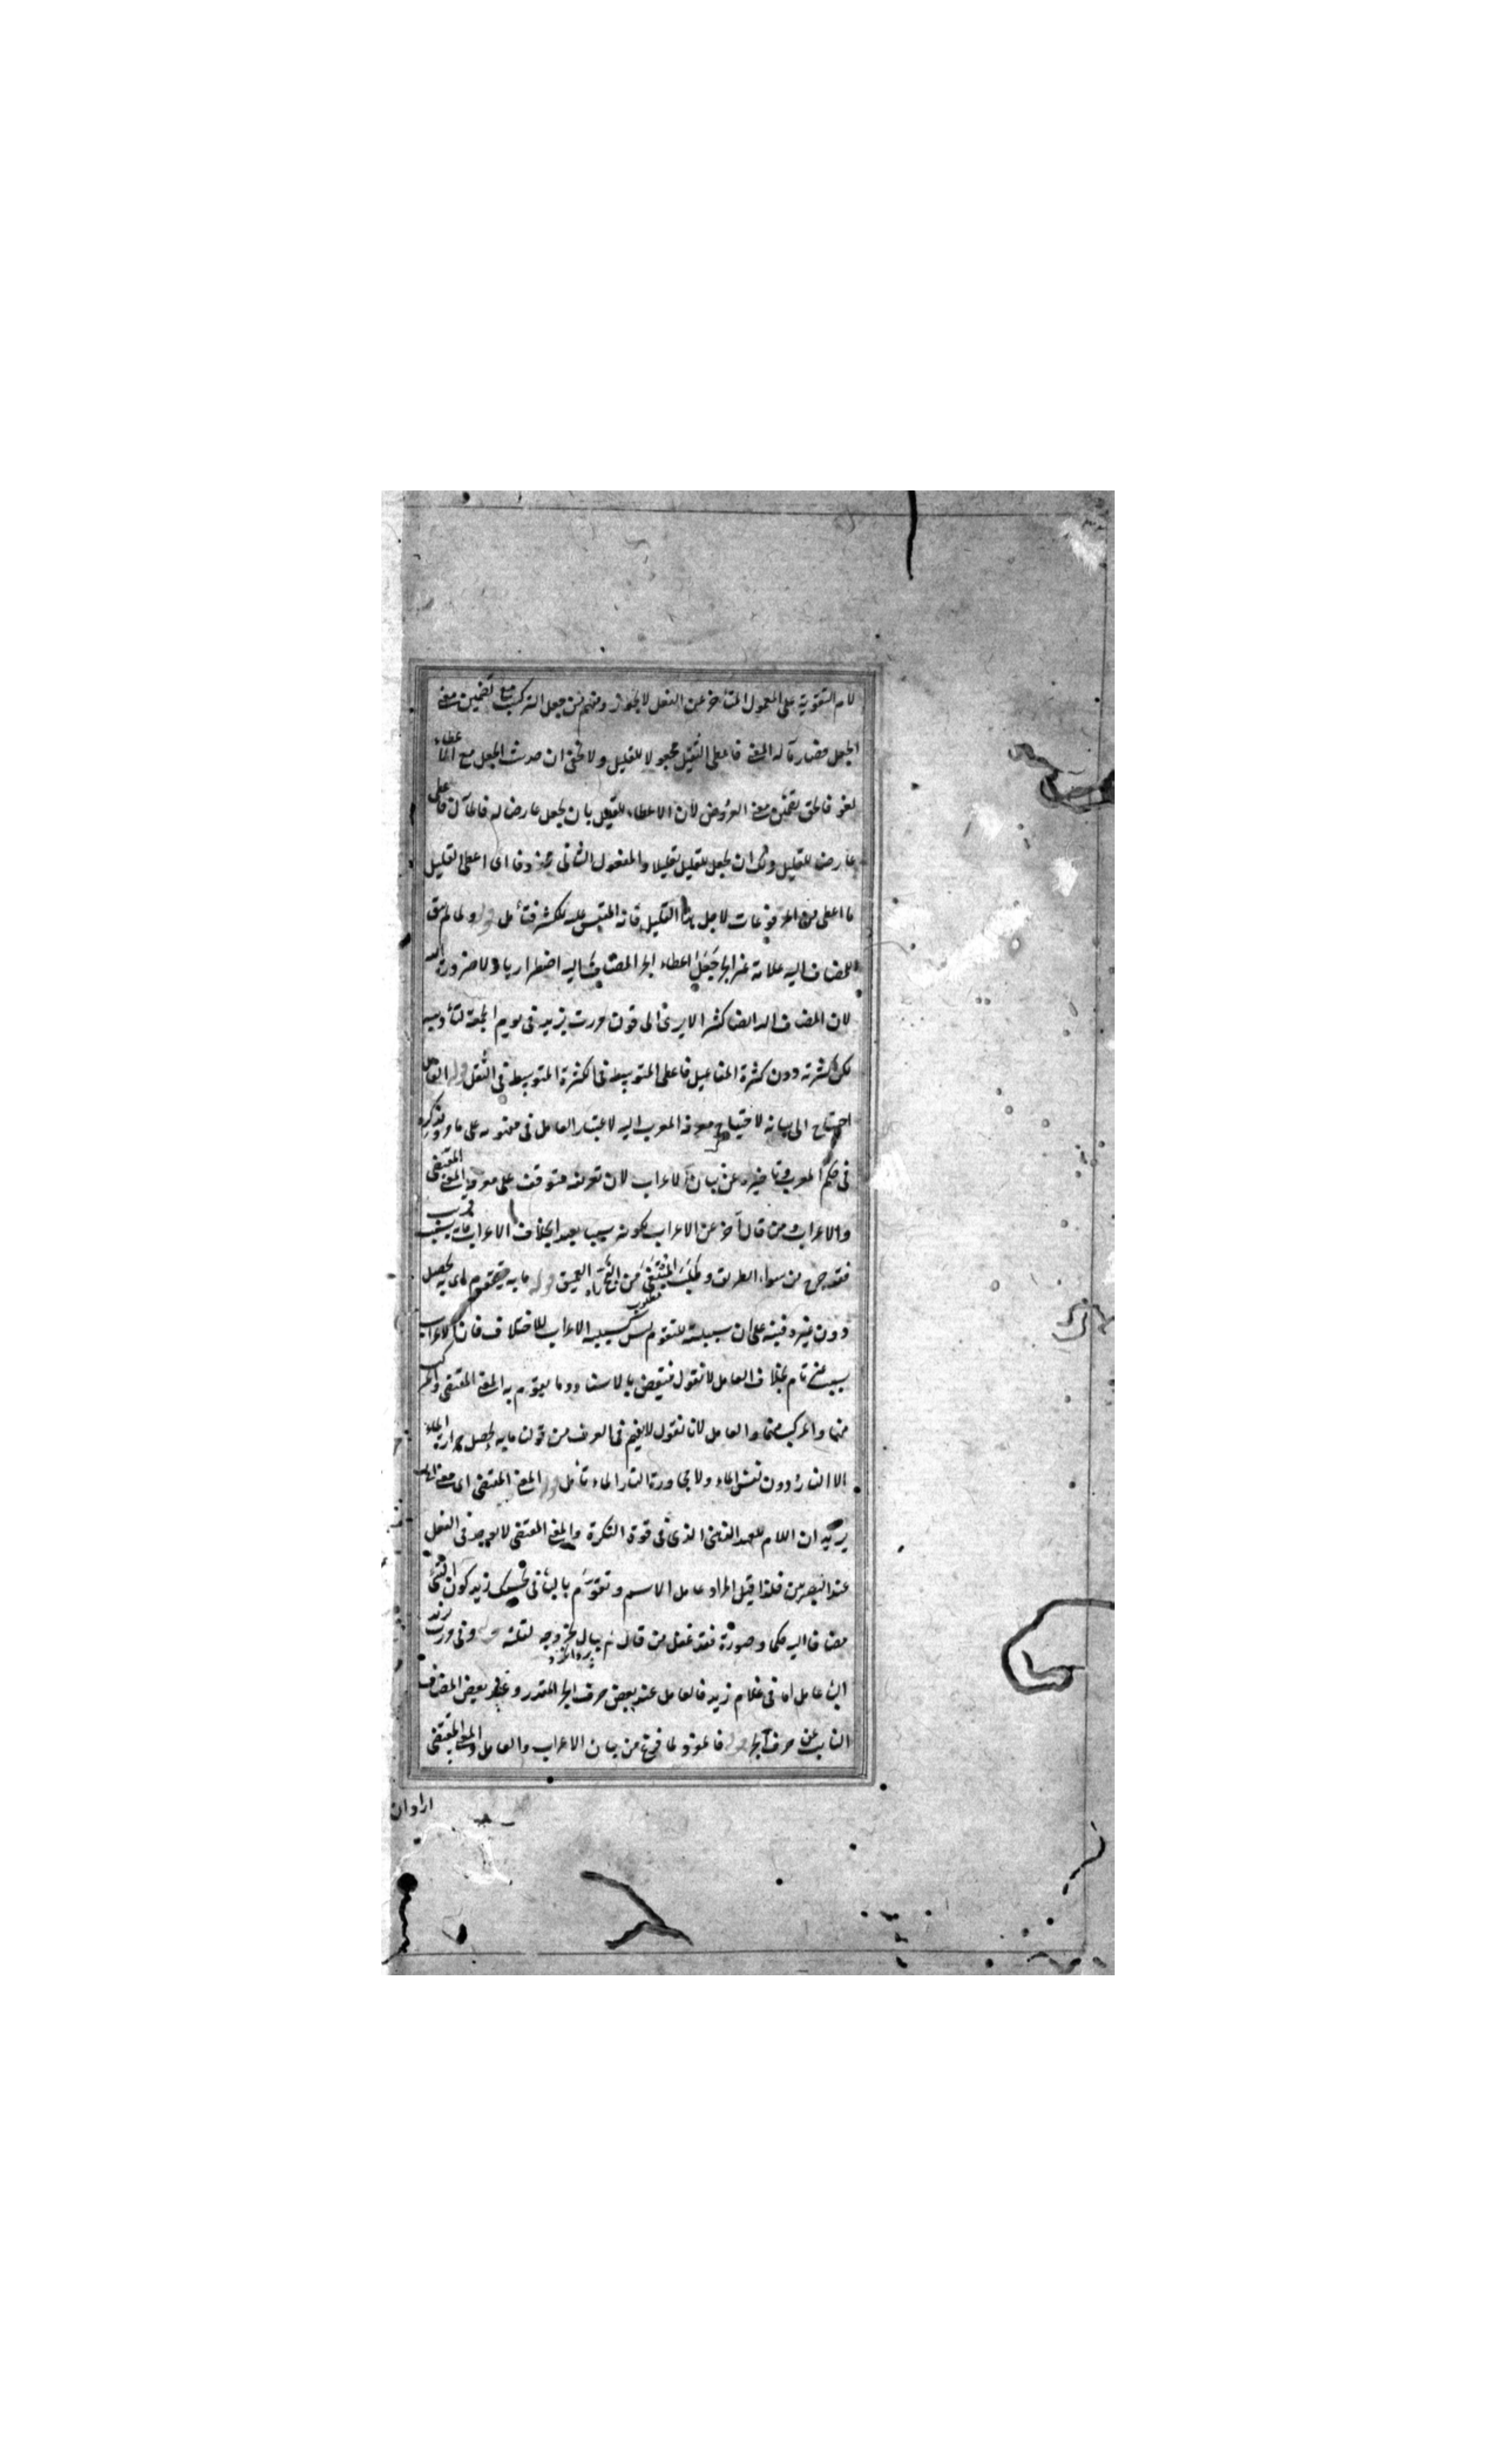 لام التقوية على المعمول المتأخر عن الفعل لا يجوز ومنهم من جعل التركيب مع تضمين معنى
الجعل فصار مآله المعنى فاعلى الثقيل مجعولا للقليل ولا يخفى ان حديث الجعل مع الاعطاء
لغو فالحق تضمين معنى العروض لان الاعطاء للقليل بان يجعل عارضا له فالمآل فاعلى
عارضا للقليل ولك ان تجعل للقليل تعليلا والمفعول الثانى محذوفا اى اعطى القليل
ما اعطى من المرفوعات لاجل هذا القليل فانه الملتبس ليكثر فتأمل قوله ولما لم يبق
للمضاف اليه علامة غير الجر جعل اعطاء الجر المضاف اليه اضطراريا ولا ضرورة
لان المضاف اليه ايضا كثير الا يرى الى قولنا مررت بزيد فى يوم الجمعة لتأديبه
لكن كثرته دون كثرة المفاعيل فاعطى المتوسط فى الكثرة المتوسط فى الثقل قوله العامل
احتاج الى بيانه لاحتياج معرفة المعرب اليه لاعتبار العامل فى مفهومه على ما مر وذكره
فى حكم المعرب وتأخيره عن بيان الاعراب لان تعريفه متوقف على معرفة المعنى المقتضى
والاعراب ومن قال آخر عن الاعراب لكونه سببا بعيدا بخلاف الاعراب فانه سبب قريب
فقد خرج من سواء الطريق وطلب المقتضى من الفج العميق قوله ما به يتقوم اى به يحصل
دون غيره وفيه على ان سببيته للتقوم ليس كسببية الاعراب للاختلاف فان الاعراب
سبب تام بخلاف العامل لا نقول فينتقض بالاسناد وما يقوم به المعنى المقتضى والمركب
منهما والمركب منهما والعامل لانا نقول لا يفهم فى العرف من قولنا ما به يحصل حرارة الماء
الا النار دون نفس الماء ولا مجاورة النار الماء تأمل قوله المعنى المقتضى اى معنى
يريد ان اللام للعهد الذهنى الذى فى قوة النكرة والمعنى المقتضى لا يوجد فى الفعل
عند البصريين فلذا قيل المراد عامل الاسم وتقوم بالباء فى بحسبك زيد كون الشئ
مضافا اليه حكما وصورة فقد غفل من قال لم يبال بخروجه لقلته قوله وفى مررت بزيد
الباء عامل اما فى غلام زيد فالعامل عند بعض حرف الجر المقدر وعند بعض المضاف
النائب عن حرف الجر قوله فالمفرد لما فرغ من بيان الاعراب والعامل والمعنى المقتضى
اراد ان